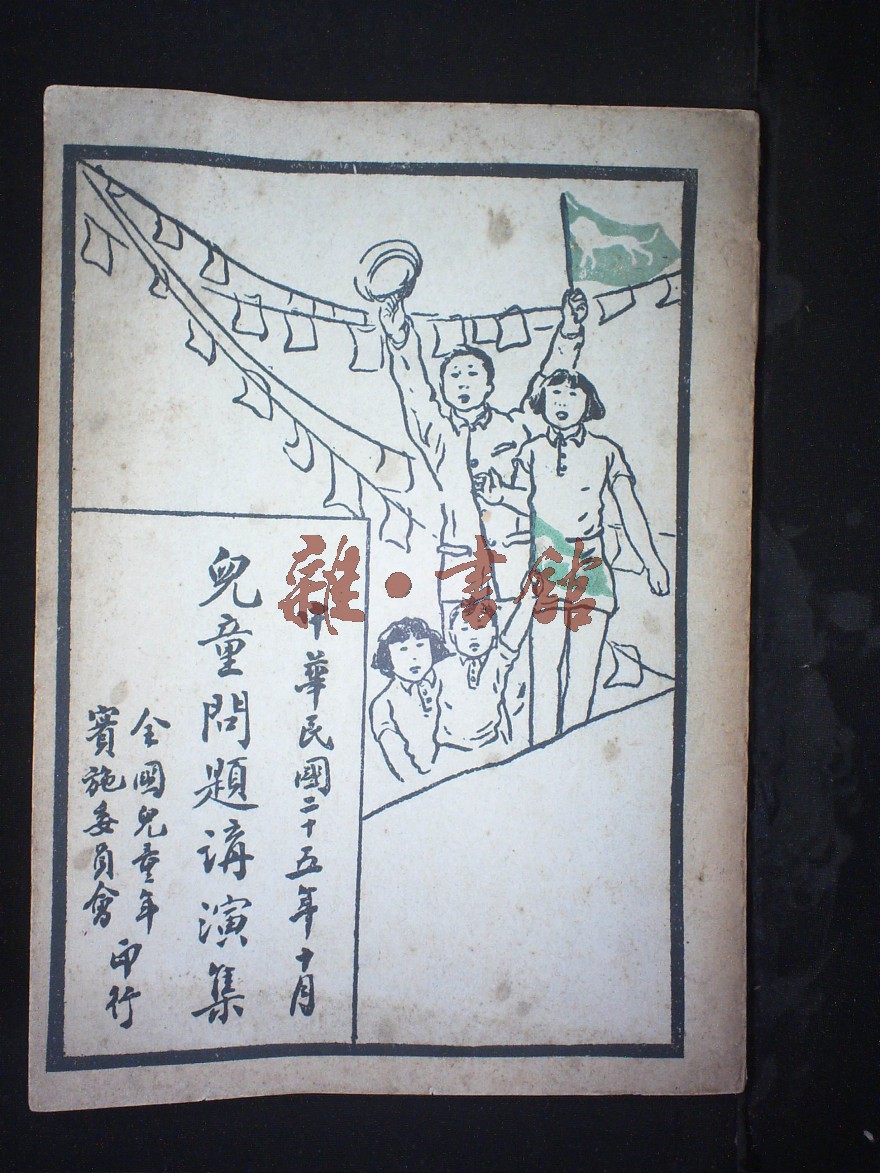 中華民國二十五年十月
兒童問題講演集
全國兒童年
實施委員會
印行
雜·書館